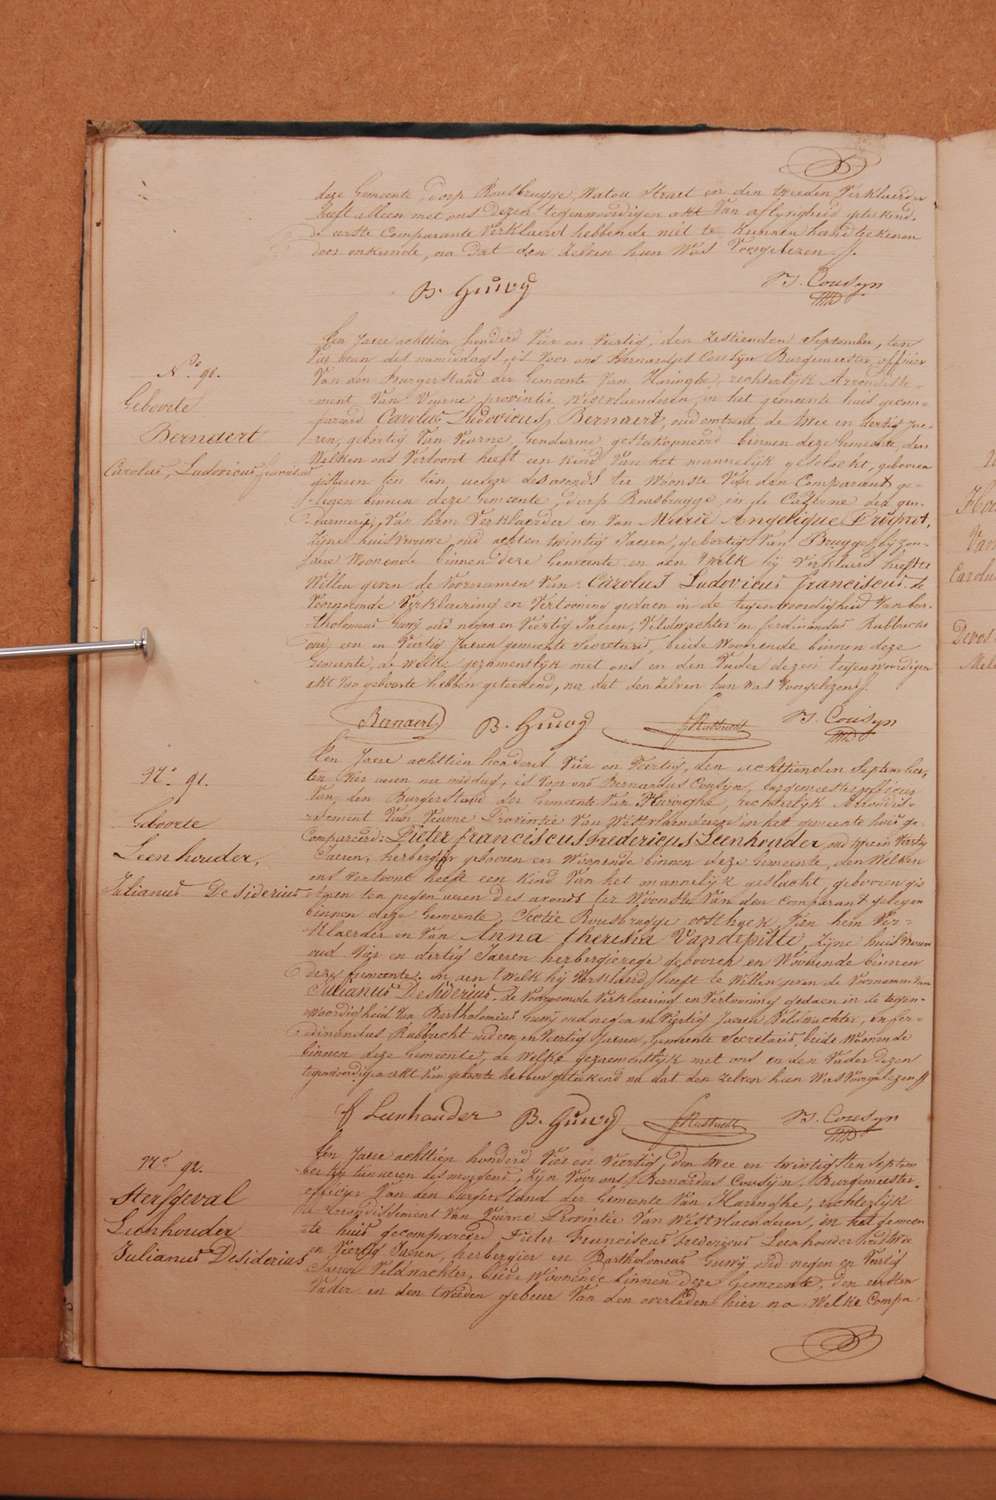 deze Gemeente, dorp Rousbrugge Watou Straet en den tweeden Verklaerder
heeft alleen met ons dezen tegenwoordigen akt van aflyvigheid geteekend,
d'eerste Comparante Verklaerd hebbende niet te kunnen handteekenen
door onkunde, na dat den zelven hun was Voorgelezen.
B. Guwy
B. Cousyn
No. 90.
Geboorte
Bernaert
Carolus, Ludovicus franciscus
Een Jaere achttien honderd vier en veertig, den zestienden September, ten
vier uren des namiddags, is voor ons Bernardus Cousyn Burgemeester, officier
Van den Burgerstand der Gemeente Van Haringhe, rechterlyk Arrondisse-
ment Van Veurne, provintie Westvlaenderen, in het gemeente huis gecom-
pareerd Carolus Ludovicus Bernaert, oud omtrent de twee en dertig jae-
ren, gebortig Van Veurne, Gendarme gestationneerd binnen deze Gemeente, den
Welken ons Vertoont heeft een kind Van het mannelyk geslacht, geboren
gisteren ten tien uren des avonds ter Woonste Van den Comparant ge-
legen binnen deze Gemeente, dorp Rousbrugge, in de Cazerne der gen-
darmerie, Van hem Verklaerder en Van Marie Angelique Trugnet,
zyne huisvrouwe, oud achtentwintig Jaeren, gebortig Van Brugge, by zon-
dere Woonende binnen deze Gemeente en aen 't welk hy Verklaerd heeft te
Willen geven de Voornamen Van Carolus Ludovicus franciscus. de
Voorgemelde Verklaering en Vertooning gedaen in de tegenwoordigheid Van bar-
tholomeus Guwy oud negen en Veertig Jaeren, Veldwachter en ferdinandus Rubbrecht
oud een en Veertig Jaeren gemeente Secretaris, beide woonende binnen deze
Gemeente, de welke gezamentlyk met ons en den Vader dezen tegenwoordigen
akt Van geboorte hebben geteekend, na dat den zelven hun was Voorgelezen.
Bernaert
B. Guwy
f Rubbrecht
B. Cousyn
No. 91.
Geboorte
Leenhouder,
Julianus Desiderius
Een Jaere achttien honderd Vier en Veertig, den achttienden September,
ten Vier uren na middag, is Voor ons Bernardus Cousyn, burgemeester officier
Van den Burgerstand der Gemeente Van Haringhe, rechterlyk Arrondis-
sement Van Veurne Provintie Van Westvlaenderen in het gemeente huis ge-
Compareerd: Pieter franciscus fredericus Leenhouder, oud twee en Veertig
Jaeren, herbergier geboren en Woonende binnen deze Gemeente, den Welken
ons Vertoont heeft een kind Van het mannelyk geslacht, geboren gis-
teren ten negen uren des avonds ter Woonste Van den Comparant gelegen
binnen deze Gemeente, Sectie Rousbrugge oosthoek, Van hem Ver-
klaerder en Van Anna theresia Vandeputte, zyne huisvrouw
oud Vyf en dertig Jaeren herbergierege geboren en Woonende binnen
deze Gemeente. en aen 't welk hy Verklaerd heeft te Willen geven de Voornamen Van
Julianus Desiderius, de Voorgemelde Verklaering en Vertooning gedaen in de tegen-
woordigheid Van Bartholomeus Guwy oud negen en Veertig Jaeren Veldwachter, en fer-
dinandus Rubbrecht oud een en Veertig Jaeren, Gemeente Secretaris, beide Woonende
binnen deze Gemeente, de Welke gezamentlyk met ons en den Vader dezen
tegenwoordigen akt Van geboorte hebben geteekend na dat den zelven hun Was Voorgelezen
f Leenhouder
B. Guwy
f Rubbrecht
B. Cousyn
No. 92.
Sterfgeval
Leenhouder
Julianus Desiderius
Een Jaere achttien honderd Vier en Veertig, den twee en twintigsten Septem
ber ten uren des morgens, Zyn Voor ons Bernardus Cousyn, Burgemeester
officier Van den burgerstand der Gemeente Van Haringhe, rechterlyk
Arrondissement Van Veurne Provintie Van Westvlaenderen, in het gemeen
te huis gecompareerd Pieter Franciscus fredericus Leenhouder oud twee
en Veertig Jaeren, herbergier en Bartholomeus Guwy oud negen en Veertig
Jaeren Veldwachter, beide Woonende binnen deze Gemeente, den eersten
Vader en den tweeden gebeur Van den overleden hier na, welke Compa-